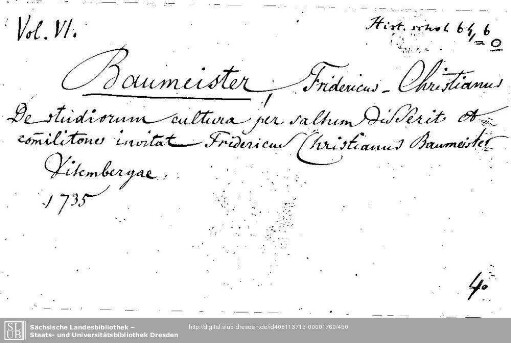 Vol. VI.
Hist. schol. 64, 6
Baumeister, Fridericus Christianus
De studiorum cultura per saltum disserit et
com̄ilitones invitat Fridericus Christianus Baumeister
Vitembergae.
1735
4°
SLUB
Sächsische Landesbibliothek –
Staats- und Universitätsbibliothek Dresden